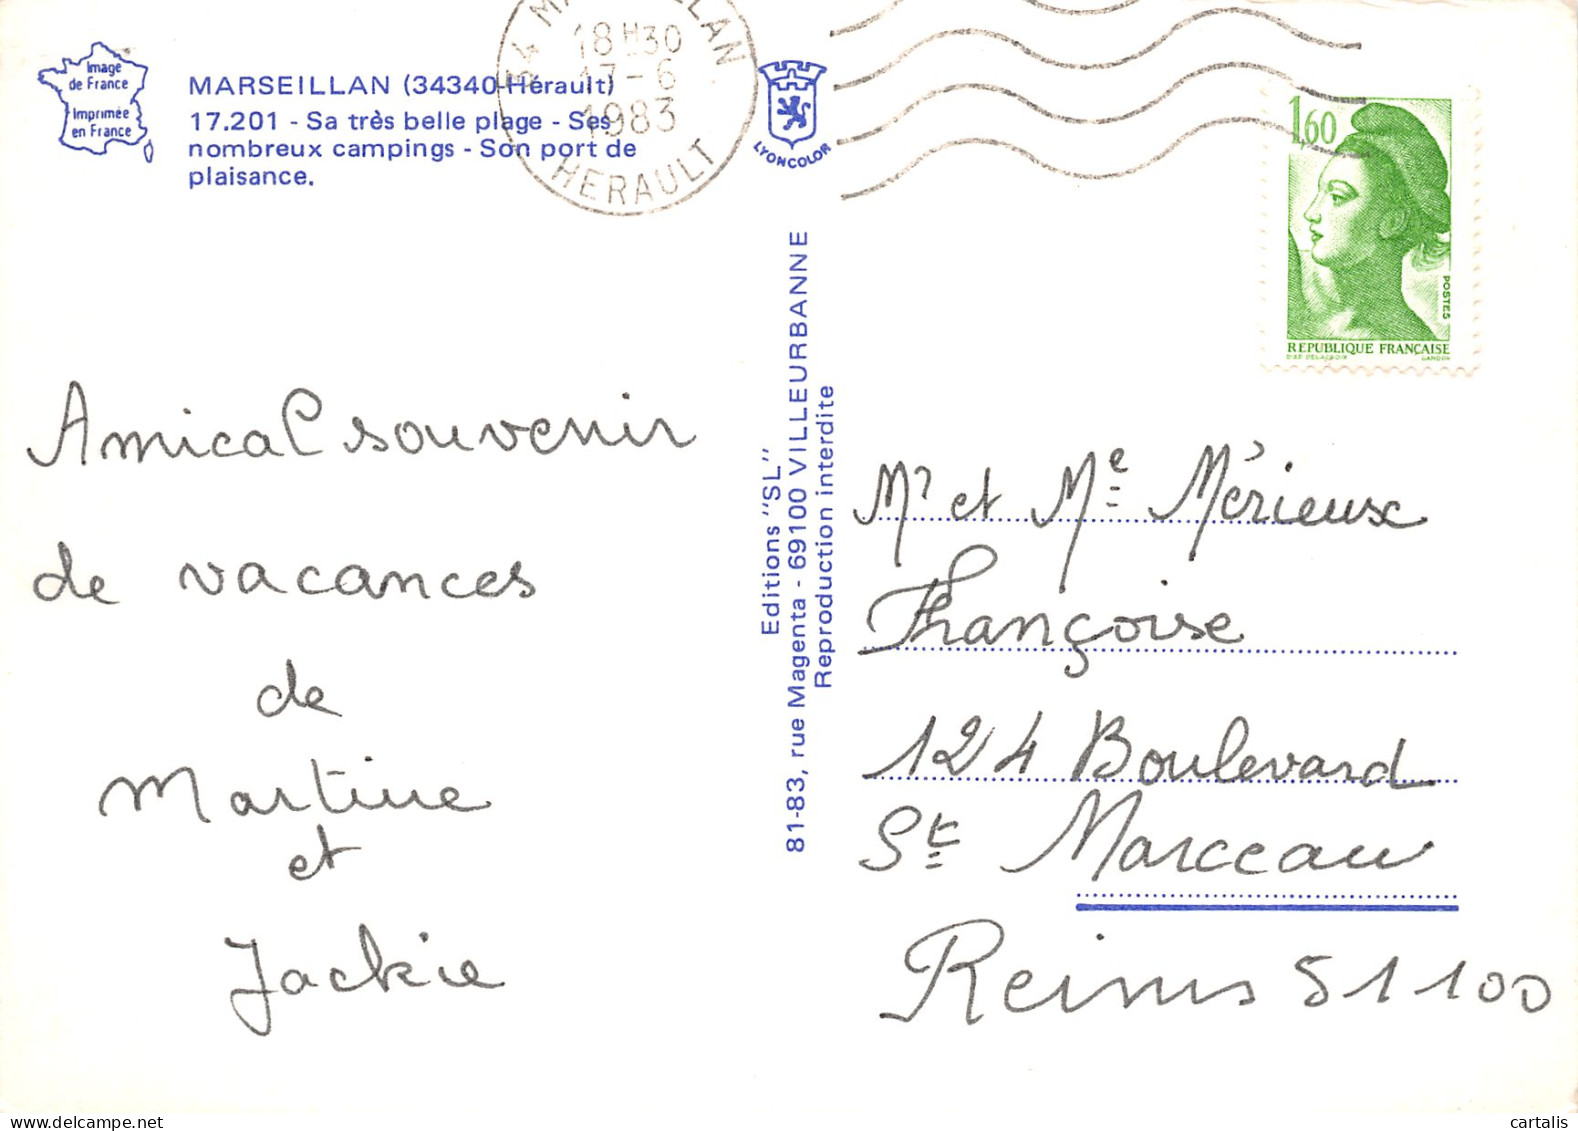 Image
de France
Imprimée
en France
MARSEILLAN (34340-Hérault)
17.201 - Sa très belle plage - Ses
nombreux campings - Son port de
plaisance.
18H30
17-6
1983
HERAULT
LYONCOLOR
1,60
POSTES
REPUBLIQUE FRANÇAISE
D'AP. DELACROIX GANDON
Amical souvenir
de vacances
de
Martine
et
Jackie
Editions "SL"
81-83, rue Magenta - 69100 VILLEURBANNE
Reproduction interdite
Mr et Me Mérieux
Françoise
124 Boulevard
St Marceau
Reims 51100
delcampe.net
cartalis